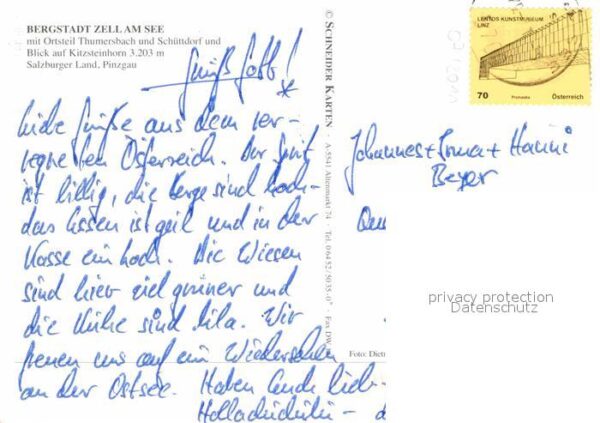 BERGSTADT ZELL AM SEE
mit Ortsteil Thumersbach und Schüttdorf und
Blick auf Kitzsteinhorn 3.203 m
Salzburger Land, Pinzgau
Grüß Gott!
liebe Grüße aus dem ver-
regneten Österreich. Der Sprit
ist billig, die Berge sind hoch
das Essen ist geil und in der
Kasse ein Loch. Die Wiesen
sind hier viel grüner und
die Kühe sind lila. Wir
freuen uns auf ein Wiedersehen
an der Ostsee. Haben Euch lieb
Holladihidihi -
© SCHNEIDER KARTEN · A-5541 Altenmarkt 74 · Tel. 0 64 52 / 50 35-0* · Fax DW
LENTOS KUNSTMUSEUM
LINZ
70
Österreich
Johannes + Irma + Hanni
Beyer
privacy protection
Datenschutz
Foto: Dietr